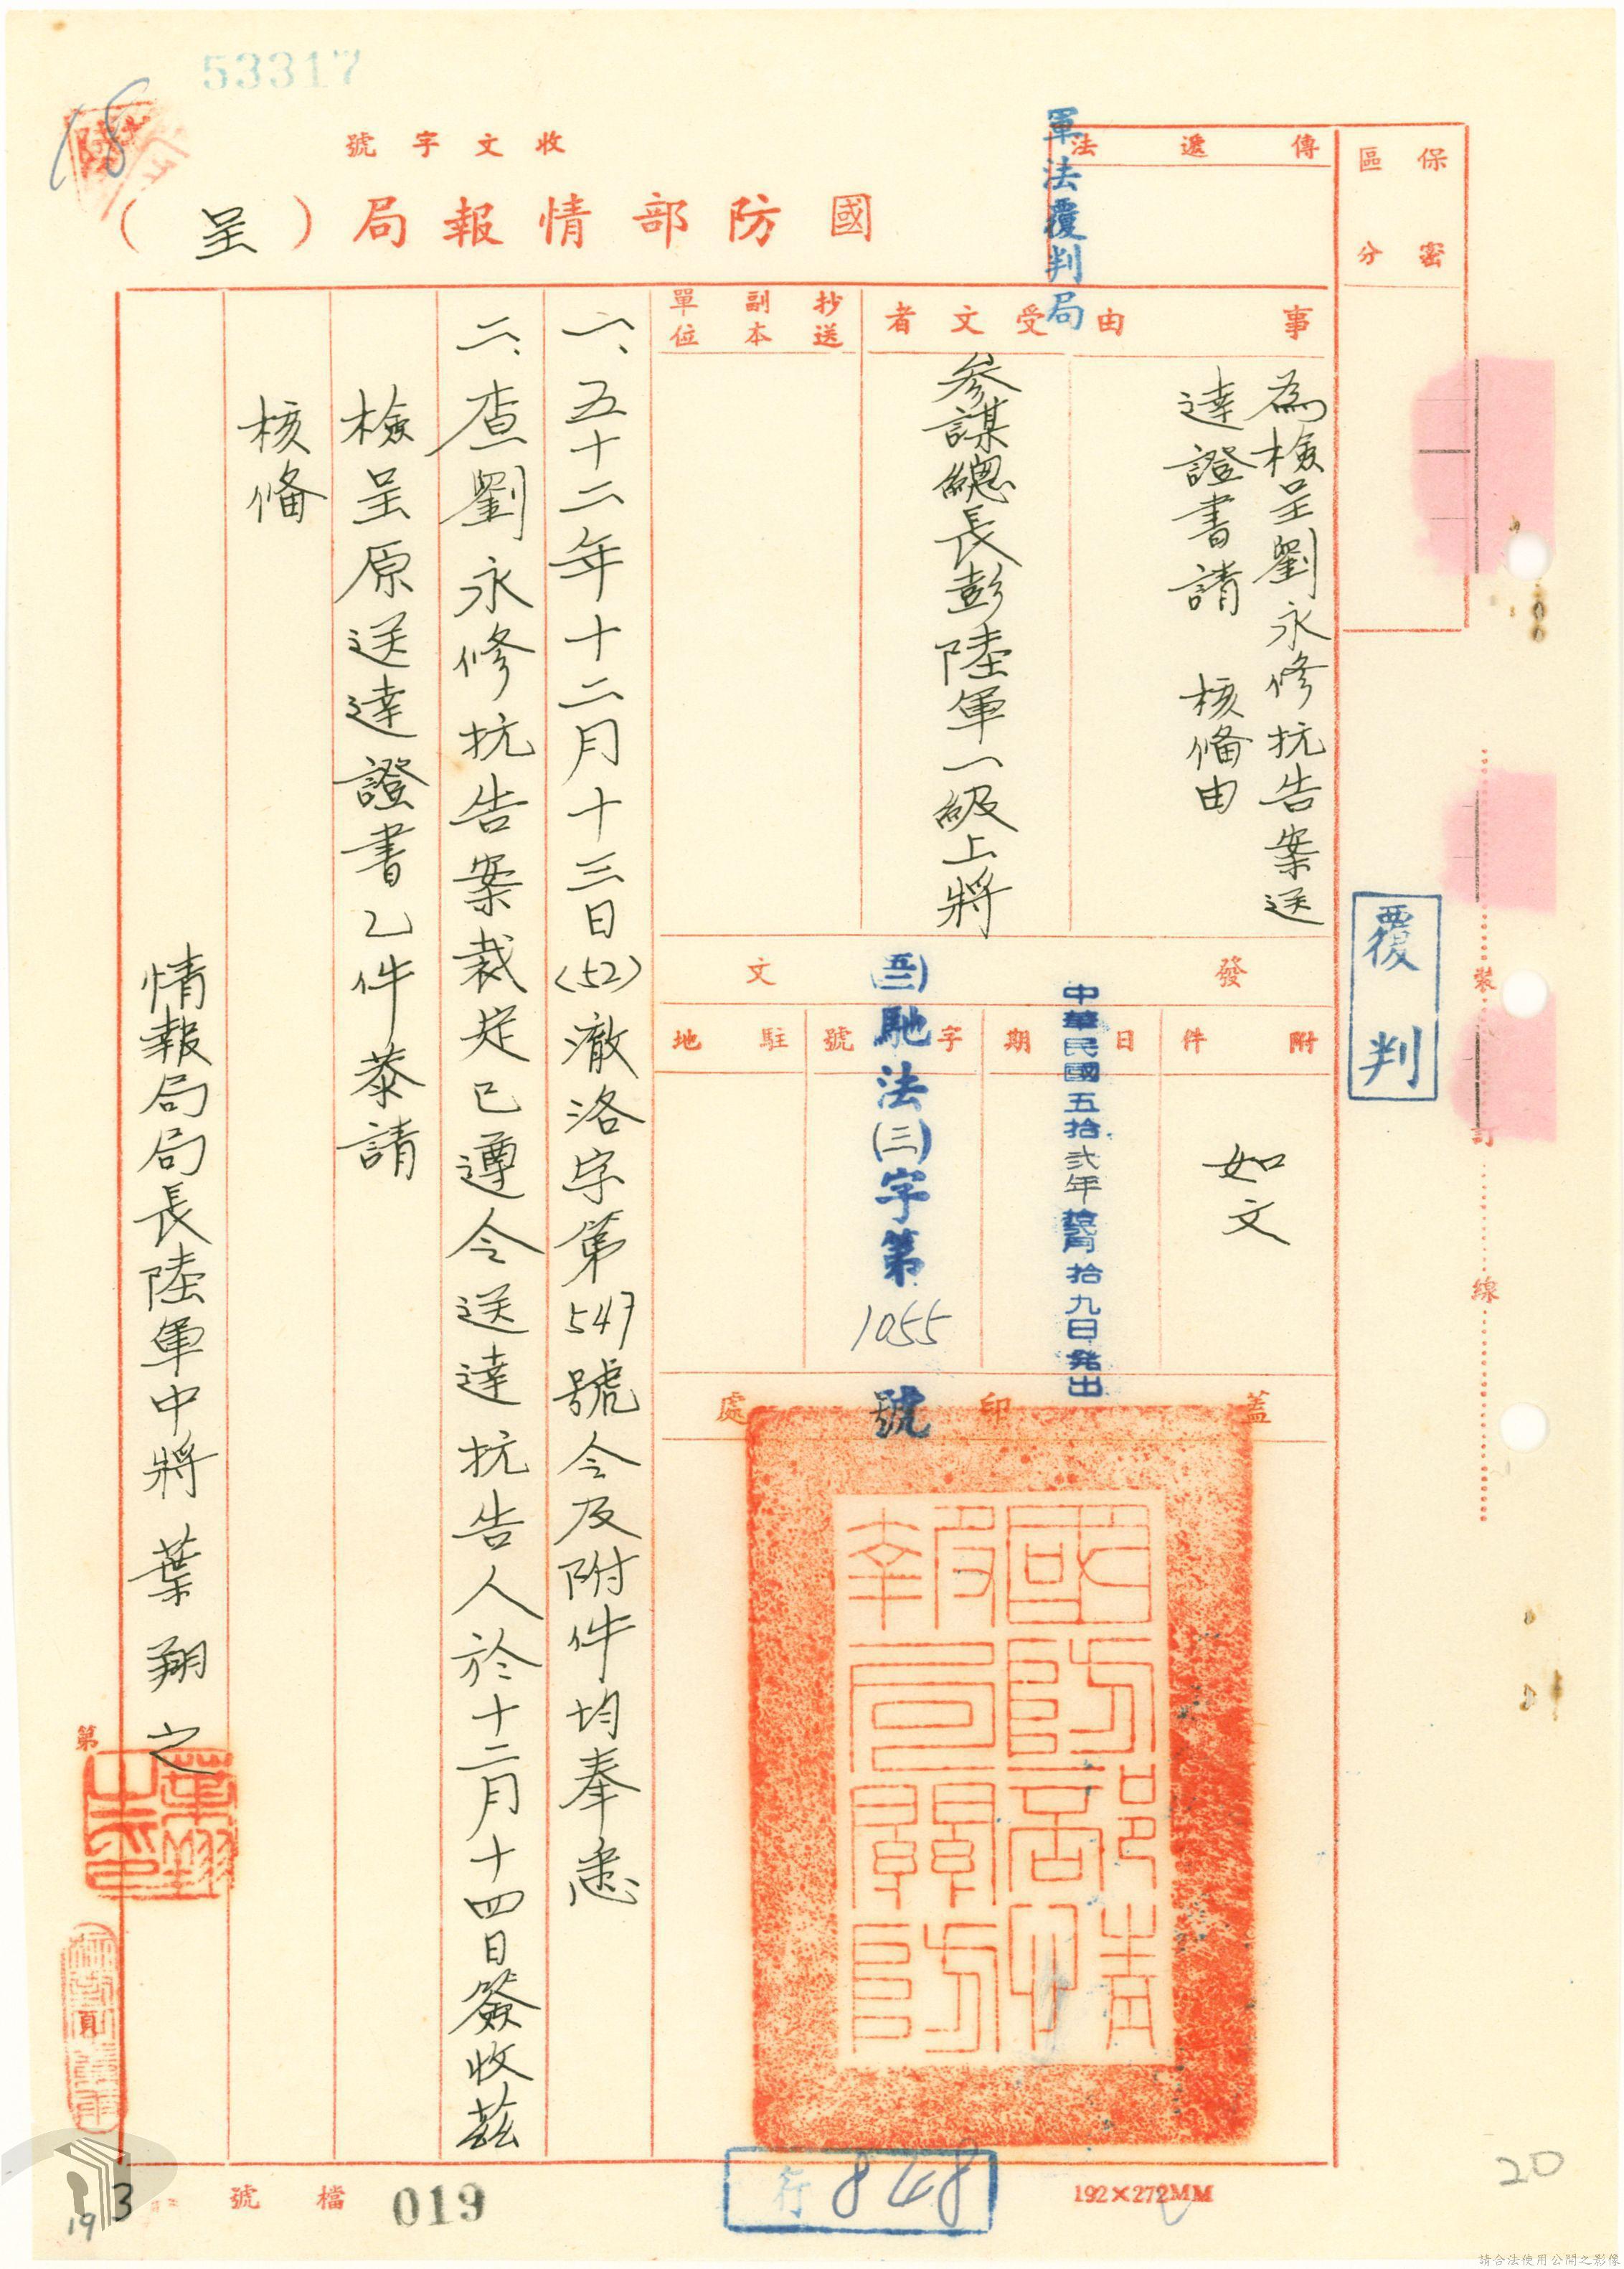 53317
18
收文字號
國防部情報局(呈)
保密區分
傳遞法
軍法覆判局
事由
為檢呈劉永修抗告案送
達證書請 核備由
受文者
參謀總長彭陸軍一級上將
抄送副本單位
發文
附件
如文
日期
中華民國五拾弍年拾弍月拾九日発出
字號
(五二)馳法(三)字第1055號
駐地
蓋印處
國防部情報局關防
覆判
裝訂線
一、五十二年十二月十三日(52)澈洛字第547號令及附件均奉悉
二、查劉永修抗告案裁定已遵令送達抗告人於十二月十四日簽收茲
檢呈原送達證書乙件恭請
核備
情報局局長陸軍中將 葉翔之
葉翔之印
第
頁
檔號
019
行 848
192×272MM
20
19
3
請合法使用公開之影像